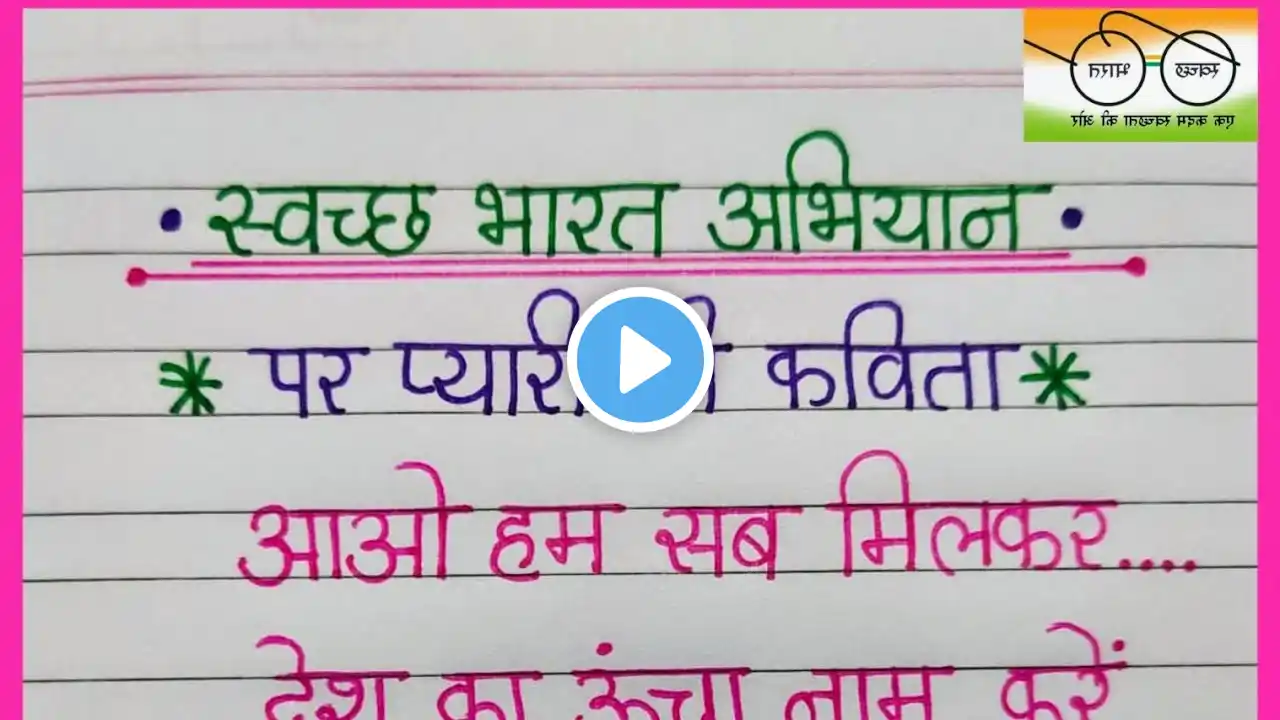 स्वच्छ भारत
एक कदम स्वच्छता की ओर
• स्वच्छ भारत अभियान •
* पर प्यारी कविता *
आओ हम सब मिलकर....
देश का ऊंचा नाम करें